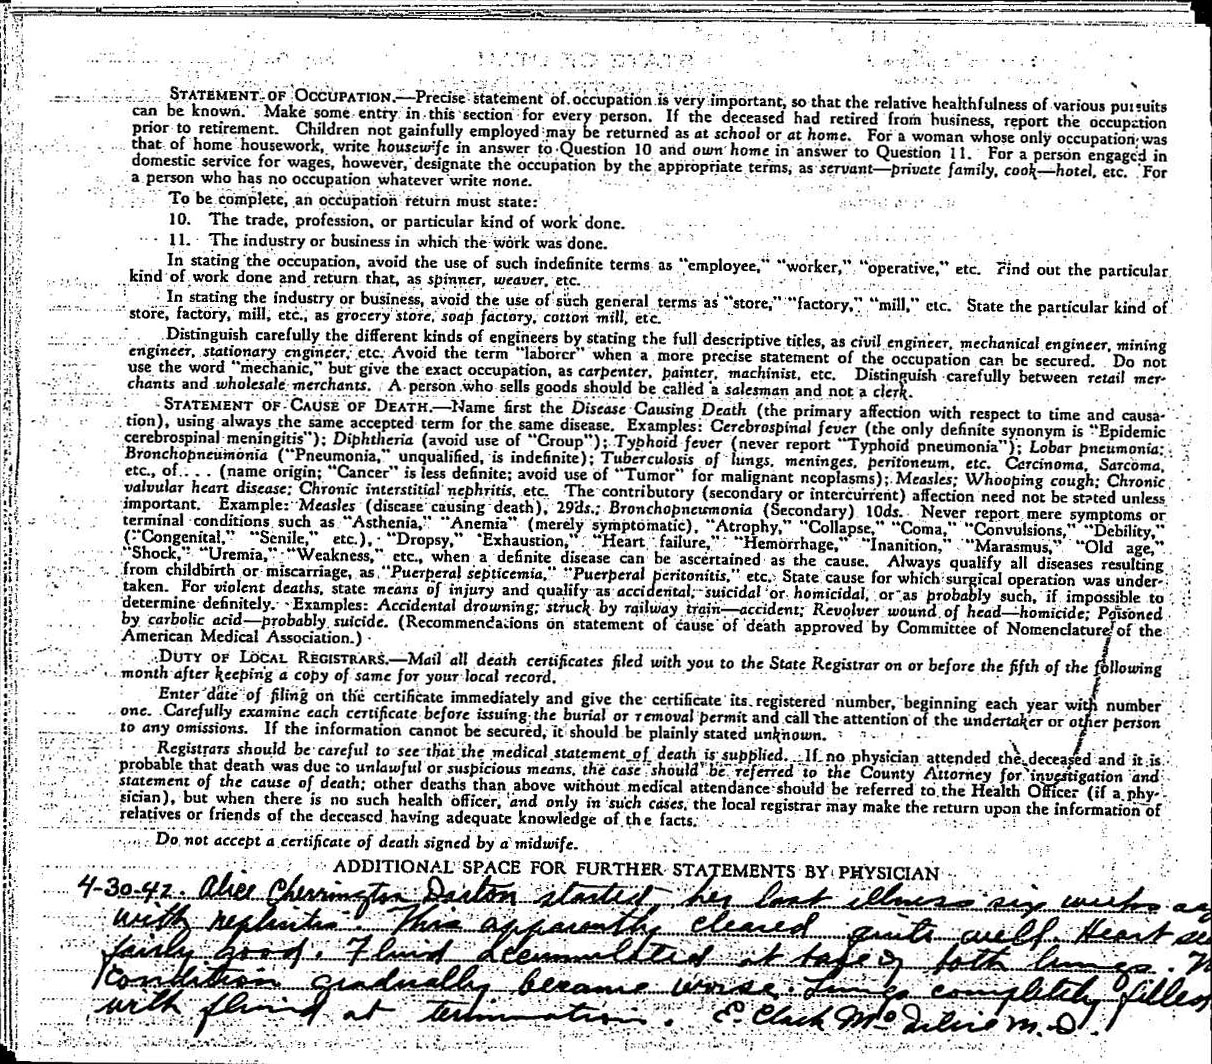 STATEMENT OF OCCUPATION.—Precise statement of occupation is very important, so that the relative healthfulness of various pursuits
can be known. Make some entry in this section for every person. If the deceased had retired from business, report the occupation
prior to retirement. Children not gainfully employed may be returned as at school or at home. For a woman whose only occupation was
that of home housework, write housewife in answer to Question 10 and own home in answer to Question 11. For a person engaged in
domestic service for wages, however, designate the occupation by the appropriate terms, as servant—private family, cook—hotel, etc. For
a person who has no occupation whatever write none.
To be complete, an occupation return must state:
10. The trade, profession, or particular kind of work done.
11. The industry or business in which the work was done.
In stating the occupation, avoid the use of such indefinite terms as "employee," "worker," "operative," etc. Find out the particular
kind of work done and return that, as spinner, weaver, etc.
In stating the industry or business, avoid the use of such general terms as "store," "factory," "mill," etc. State the particular kind of
store, factory, mill, etc., as grocery store, soap factory, cotton mill, etc.
Distinguish carefully the different kinds of engineers by stating the full descriptive titles, as civil engineer, mechanical engineer, mining
engineer, stationary engineer, etc. Avoid the term "laborer" when a more precise statement of the occupation can be secured. Do not
use the word "mechanic," but give the exact occupation, as carpenter, painter, machinist, etc. Distinguish carefully between retail mer-
chants and wholesale merchants. A person who sells goods should be called a salesman and not a clerk.
STATEMENT OF CAUSE OF DEATH.—Name first the Disease Causing Death (the primary affection with respect to time and causa-
tion), using always the same accepted term for the same disease. Examples: Cerebrospinal fever (the only definite synonym is "Epidemic
cerebrospinal meningitis"); Diphtheria (avoid use of "Croup"); Typhoid fever (never report "Typhoid pneumonia"); Lobar pneumonia;
Bronchopneumonia ("Pneumonia," unqualified, is indefinite); Tuberculosis of lungs, meninges, peritoneum, etc. Carcinoma, Sarcoma,
etc., of . . . (name origin; "Cancer" is less definite; avoid use of "Tumor" for malignant neoplasms); Measles; Whooping cough; Chronic
valvular heart disease; Chronic interstitial nephritis, etc. The contributory (secondary or intercurrent) affection need not be stated unless
important. Example: Measles (disease causing death), 29ds.; Bronchopneumonia (Secondary) 10ds. Never report mere symptoms or
terminal conditions such as "Asthenia," "Anemia" (merely symptomatic), "Atrophy," "Collapse," "Coma," "Convulsions," "Debility,"
("Congenital," "Senile," etc.), "Dropsy," "Exhaustion," "Heart failure," "Hemorrhage," "Inanition," "Marasmus," "Old age,"
"Shock," "Uremia," "Weakness," etc., when a definite disease can be ascertained as the cause. Always qualify all diseases resulting
from childbirth or miscarriage, as "Puerperal septicemia," "Puerperal peritonitis," etc. State cause for which surgical operation was under-
taken. For violent deaths, state means of injury and qualify as accidental, suicidal or homicidal, or as probably such, if impossible to
determine definitely. Examples: Accidental drowning; struck by railway train—accident; Revolver wound of head—homicide; Poisoned
by carbolic acid—probably suicide. (Recommendations on statement of cause of death approved by Committee of Nomenclature of the
American Medical Association.)
DUTY OF LOCAL REGISTRARS.—Mail all death certificates filed with you to the State Registrar on or before the fifth of the following
month after keeping a copy of same for your local record.
Enter date of filing on the certificate immediately and give the certificate its registered number, beginning each year with number
one. Carefully examine each certificate before issuing the burial or removal permit and call the attention of the undertaker or other person
to any omissions. If the information cannot be secured, it should be plainly stated unknown.
Registrars should be careful to see that the medical statement of death is supplied. If no physician attended the deceased and it is
probable that death was due to unlawful or suspicious means, the case should be referred to the County Attorney for investigation and
statement of the cause of death; other deaths than above without medical attendance should be referred to the Health Officer (if a phy-
sician), but when there is no such health officer, and only in such cases, the local registrar may make the return upon the information of
relatives or friends of the deceased having adequate knowledge of the facts.
Do not accept a certificate of death signed by a midwife.
ADDITIONAL SPACE FOR FURTHER STATEMENTS BY PHYSICIAN
4-30-42. Alice Cherrington started her last illness six weeks
with nephritis. This apparently cleared quite well. Heart
fairly good. Fluid accumulated at base of both lungs.
Condition gradually became worse. Lungs completely filled
with fluid at termination. E. Clark M.D.